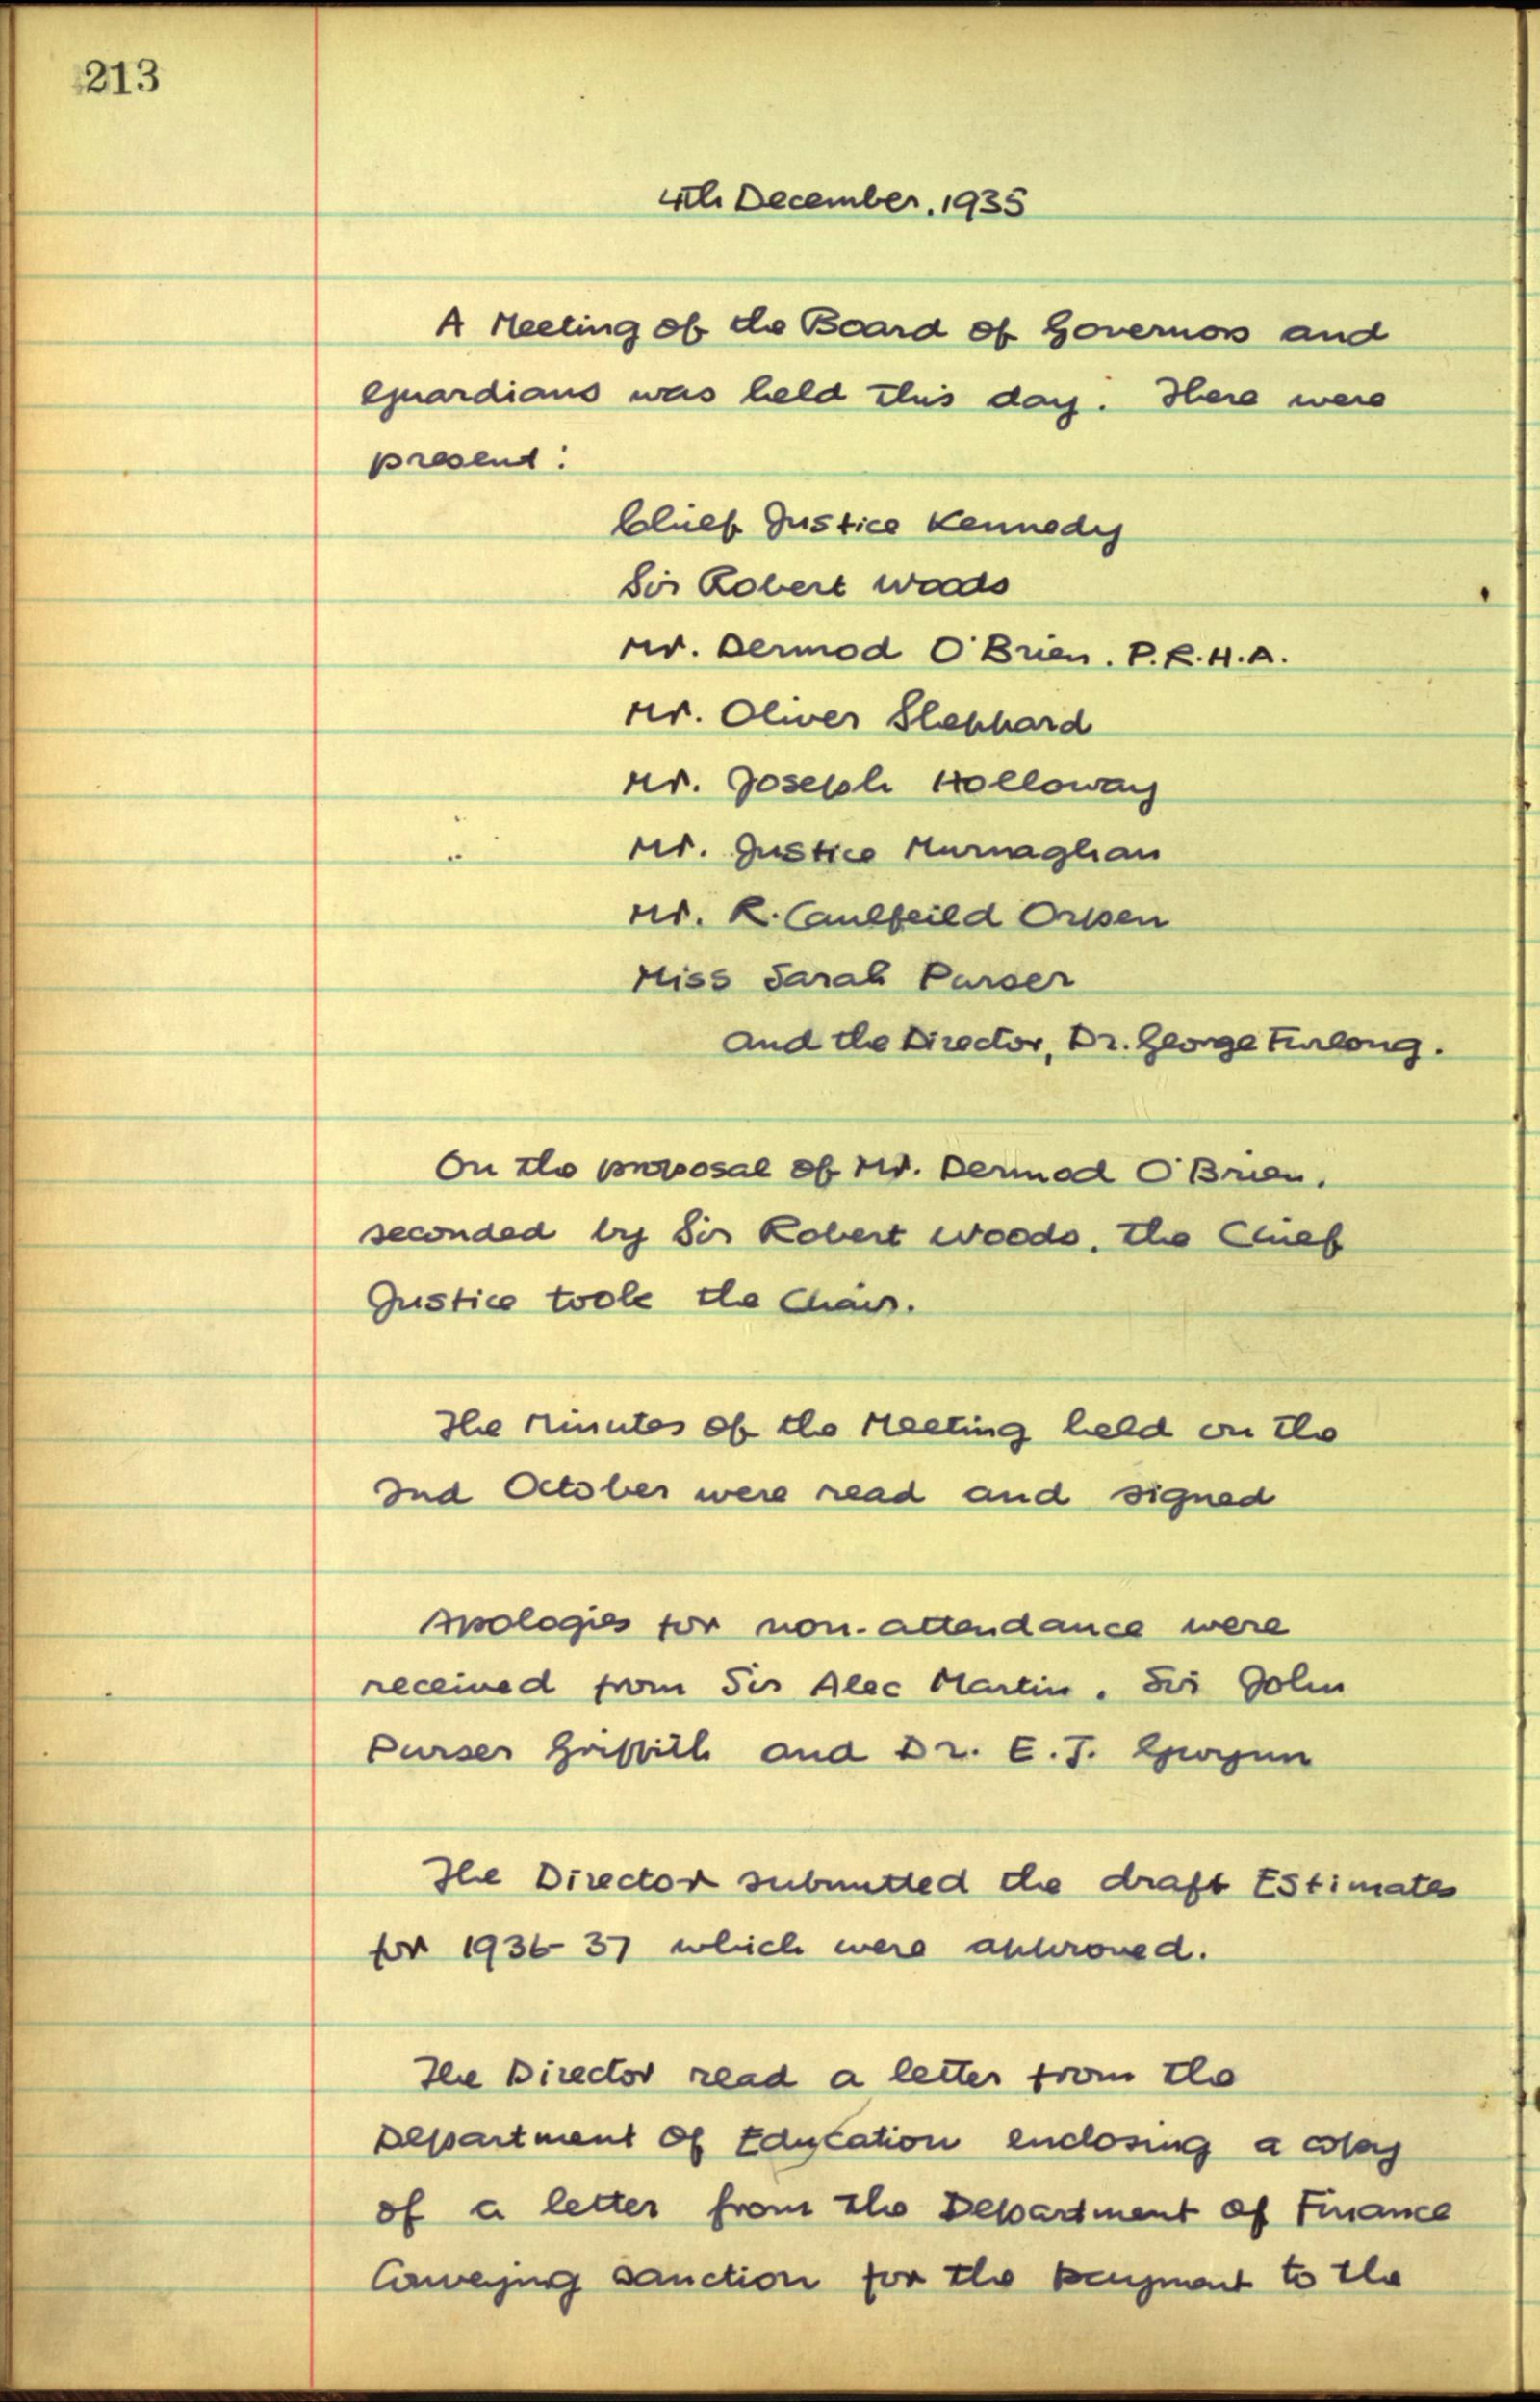 213
4th December, 1935
A Meeting of the Board of Governors and
Guardians was held this day. There were
present:
Chief Justice Kennedy
Sir Robert Woods
Mr. Dermod O'Brien. P.R.H.A.
Mr. Oliver Sheppard
Mr. Joseph Holloway
Mr. Justice Murnaghan
Mr. R. Caulfeild Orpen
Miss Sarah Purser
and the Director, Dr. George Furlong.
On the proposal of Mr. Dermod O'Brien,
seconded by Sir Robert Woods, the Chief
Justice took the Chair.
The Minutes of the Meeting held on the
2nd October were read and signed
Apologies for non-attendance were
received from Sir Alec Martin, Sir John
Purser Griffith and Dr. E.J. Gwynn
The Director submitted the draft Estimates
for 1936-37 which were approved.
The Director read a letter from the
Department of Education enclosing a copy
of a letter from the Department of Finance
Conveying sanction for the payment to the